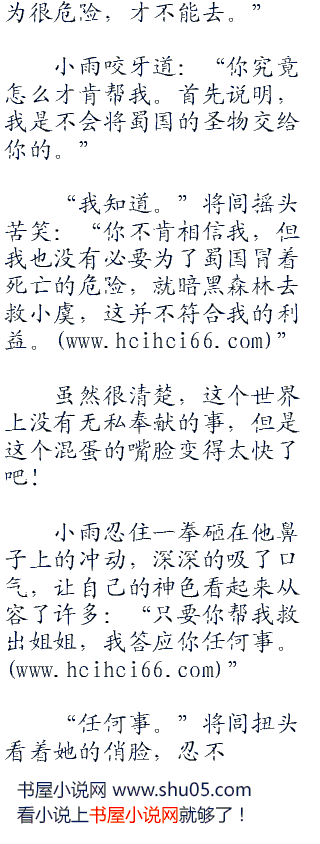 为很危险，才不能去。”
小雨咬牙道：“你究竟
怎么才肯帮我。首先说明，
我是不会将蜀国的圣物交给
你的。”
“我知道。”将闾摇头
苦笑：“你不肯相信我，但
我也没有必要为了蜀国冒着
死亡的危险，就暗黑森林去
救小虞，这并不符合我的利
益。(www.hcihci66.com)”
虽然很清楚，这个世界
上没有无私奉献的事，但是
这个混蛋的嘴脸变得太快了
吧！
小雨忍住一拳砸在他鼻
子上的冲动，深深的吸了口
气，让自己的神色看起来从
容了许多：“只要你帮我救
出姐姐，我答应你任何事。
(www.hcihci66.com)”
“任何事。”将闾扭头
看着她的俏脸，忍不
书屋小说网 www.shu05.com
看小说上书屋小说网就够了！